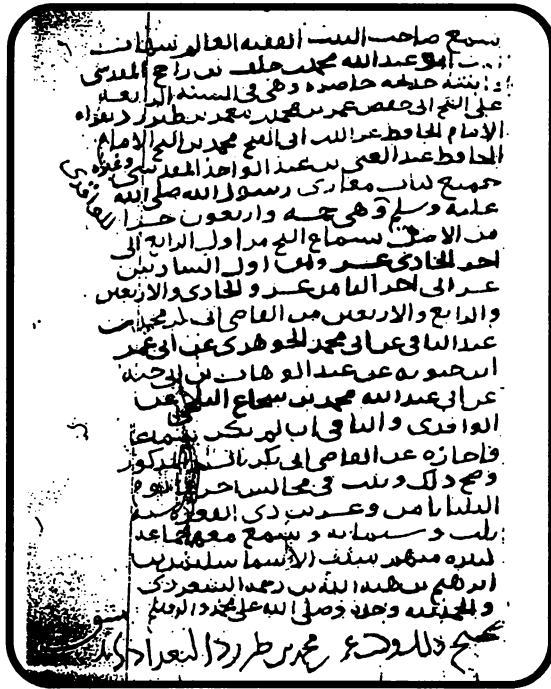 سمع صاحب البيت الفقيه العالم شهاب
ابو عبدالله محمد بن خلف بن راجح المقدسى
وابنته خديجه حاضره وهى فى السنه الرابعه
على الشيخ الى حفص عمر بن محمد بن معمر بن طبرزد بقراه
الامام الحافظ عز الدين ابى الفتح محمد بن الشيخ الامام
الحافظ عبد الغنى بن عبد الواحد المقدسى
جميع كتاب مغازى رسول الله صلى الله
للواقدى
عليه وسلم وهى خمسه واربعون جزا
من الاصل بسماع الشيخ من اول الرابع الى
اخر الحادى عشر ومن اول السادس
عشر الى اخر الثامن عشر والحادى والاربعين
والرابع والاربعين من القاضى ابى بكر محمد بن
عبد الباقى عن ابى محمد الجوهرى عن ابى عمر
ابن حيويه عن عبد الوهاب بن ابى حيه
عن ابى عبدالله محمد بن شجاع الثلجى عن
الواقدى والباقى ان لم يكن سماعا
فاجازه عن القاضى ابى بكر المذكور
وصح ذلك وثبت فى مجالس اخرها يوم
الثلثا ثامن وعشرين ذى القعده سنه
ثلث وستمائه وسمع معهم جماعه
ابراهيم بن هبه الله بن رحمه السعردى
والحمد لله وحده وصلى الله على محمد واله وسلم
صحيح ذلك وكتب عمر بن محمد بن طبرزد البغدادى